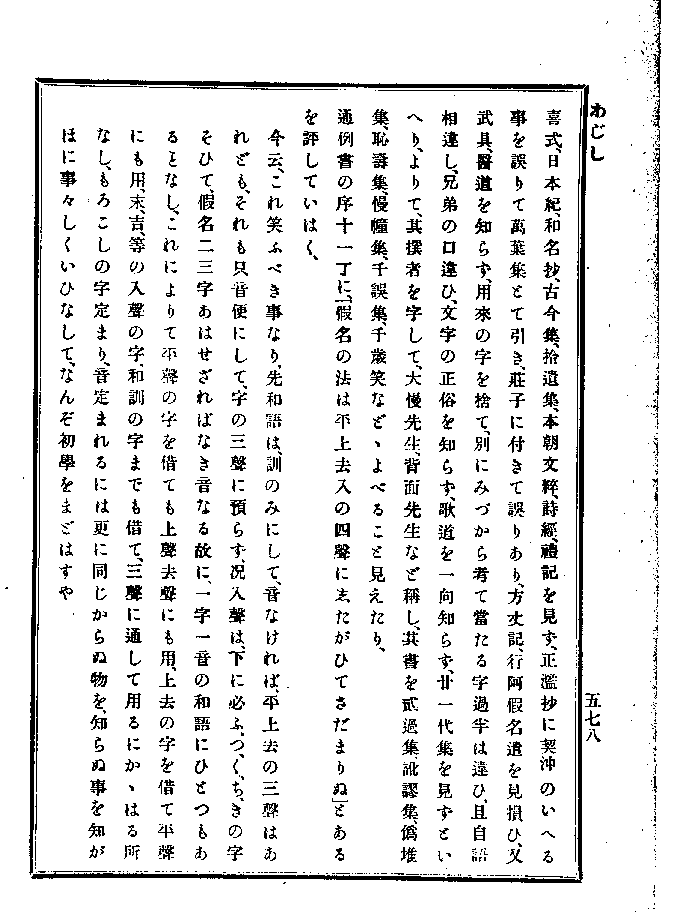 わじし
五七八
喜式、日本紀、和名抄、古今集、拾遺集、本朝文粹、詩經、禮記を見ず、正濫抄に契沖のいへる
事を誤りて萬葉集とて引き、莊子に付きて誤りあり、方丈記、行阿假名遣を見損ひ、又
武具、醫道を知らず、用來の字を捨て、別にみづから考て當たる字過半は違ひ、且自語
相違し、兄弟の口違ひ、文字の正俗を知らず、歌道を一向知らず、廿一代集を見ずとい
へり、よりて、其撰者を字して、大慢先生、背面先生など稱し、其書を貳過集、訛謬集、僞堆
集、恥壽集、慢幢集、千誤集、千歳笑などゝよべること見えたり、
通例書の序十一丁に、「假名の法は平上去入の四聲にしたがひてさだまりぬ」とある
を評していはく、
今云、これ笑ふべき事なり、先和語は、訓のみにして、音なければ、平上去の三聲はあ
れども、それも只音便にして、字の三聲に預らず、況入聲は、下に必ふ、つ、く、ち、きの字
そひて、假名二三字あはせざればなき音なる故に、一字一音の和語にひとつもあ
るとなし、これによりて平聲の字を借ても上聲去聲にも用、上去の字を借て平聲
にも用、末、吉、等の入聲の字、和訓の字までも借て、三聲に通して用るにかゝはる所
なし、もろこしの字定まり、音定まれるには更に同じからぬ物を、知らぬ事を知が
ほに事々しくいひなして、なんぞ初學をまどはすや